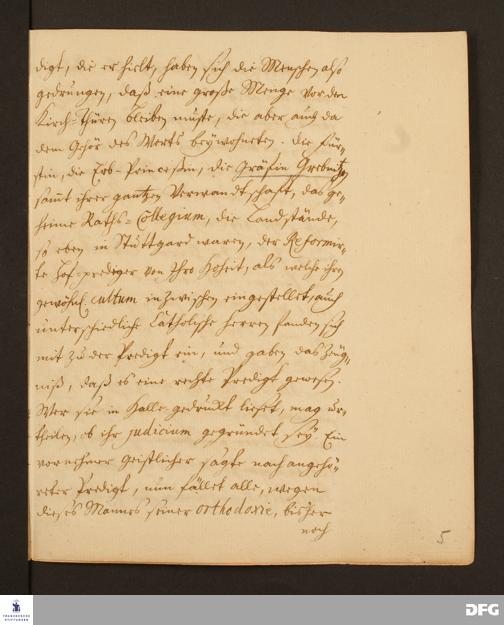 digt, die er hielt, haben sich die Menschen also
gedrungen, daß eine große Menge vor den
Kirch-Thüren bleiben muste, die aber auch da
dem Gehör des Worts beywohneten. die Für-
stin, die Erb-Princeßin, die Gräfin Grebnitz
samt ihrer gantzen Verwandtschafft, das ge-
heime Raths-Collegium, die Landstände,
so eben in Stuttgard waren, der Reformir-
te Hof-prediger von Ihro Hoheit, als welche ihren
gewöhnl. cultum inzwischen eingestellet, auch
unterschiedliche Catholische Herren fanden sich
mit zu der Predigt ein, und gaben das Zeüg-
niß, daß es eine rechte Predigt gewesen.
Wer sie in Halle gedruckt lieset, mag ur-
theilen, ob ihr judicium gegründet sey. Ein
vornehmer Geistlicher sagte nach angehö-
reter Predigt, nun fället alle, wegen
dieses Mannes seiner orthodoxie, bisher
noch
5
FRANCKESCHE
STIFTUNGEN
DFG